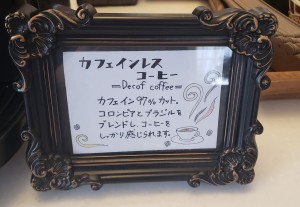 カフェインレス
コーヒー
=Decaf coffee=
カフェイン97%カット。
コロンビアとブラジルを
ブレンドし、コーヒーを
しっかり感じられます。